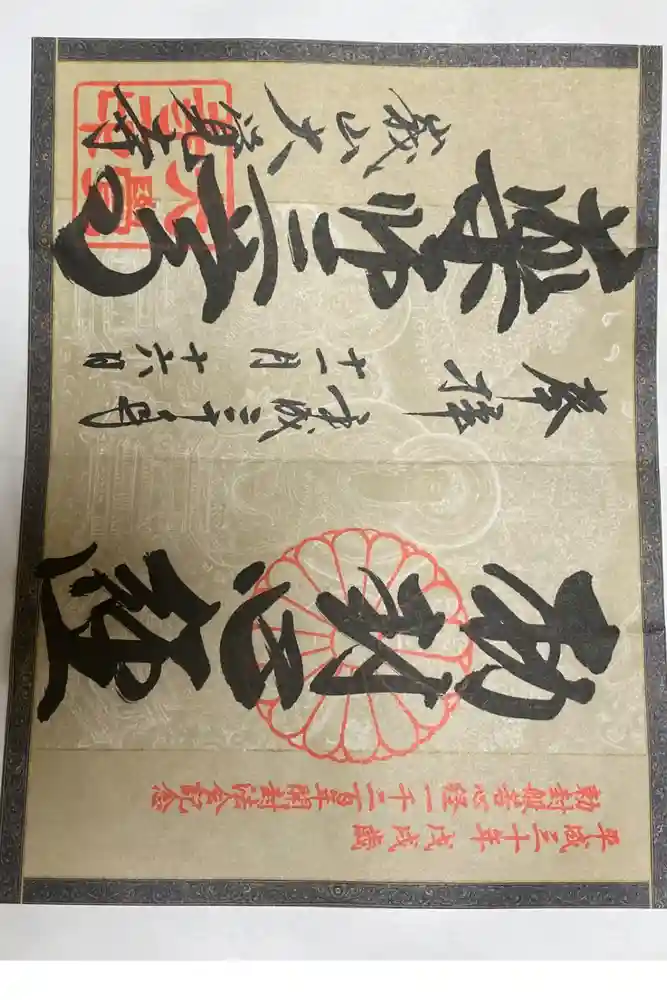 平成三十年 戊戌歳
勅封般若心経一千二百年開封法会記念
勅封心経
奉拝
平成三十年
十一月十六日
薬師三尊
山大覚寺